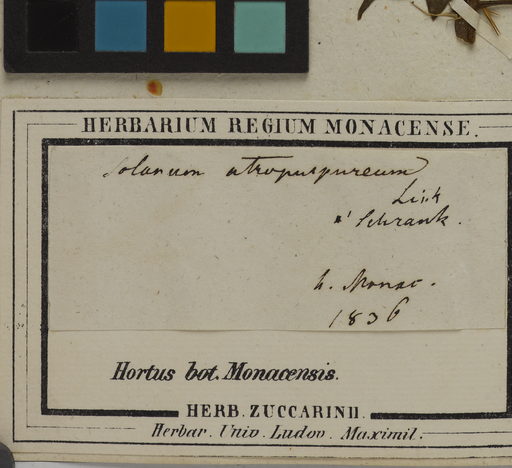 HERBARIUM REGIUM MONACENSE.
Solanum atropurpureum
Link
Schrank.
h. Monac.
1836
Hortus bot. Monacensis.
HERB. ZUCCARINII.
Herbar. Univ. Ludov. Maximil.